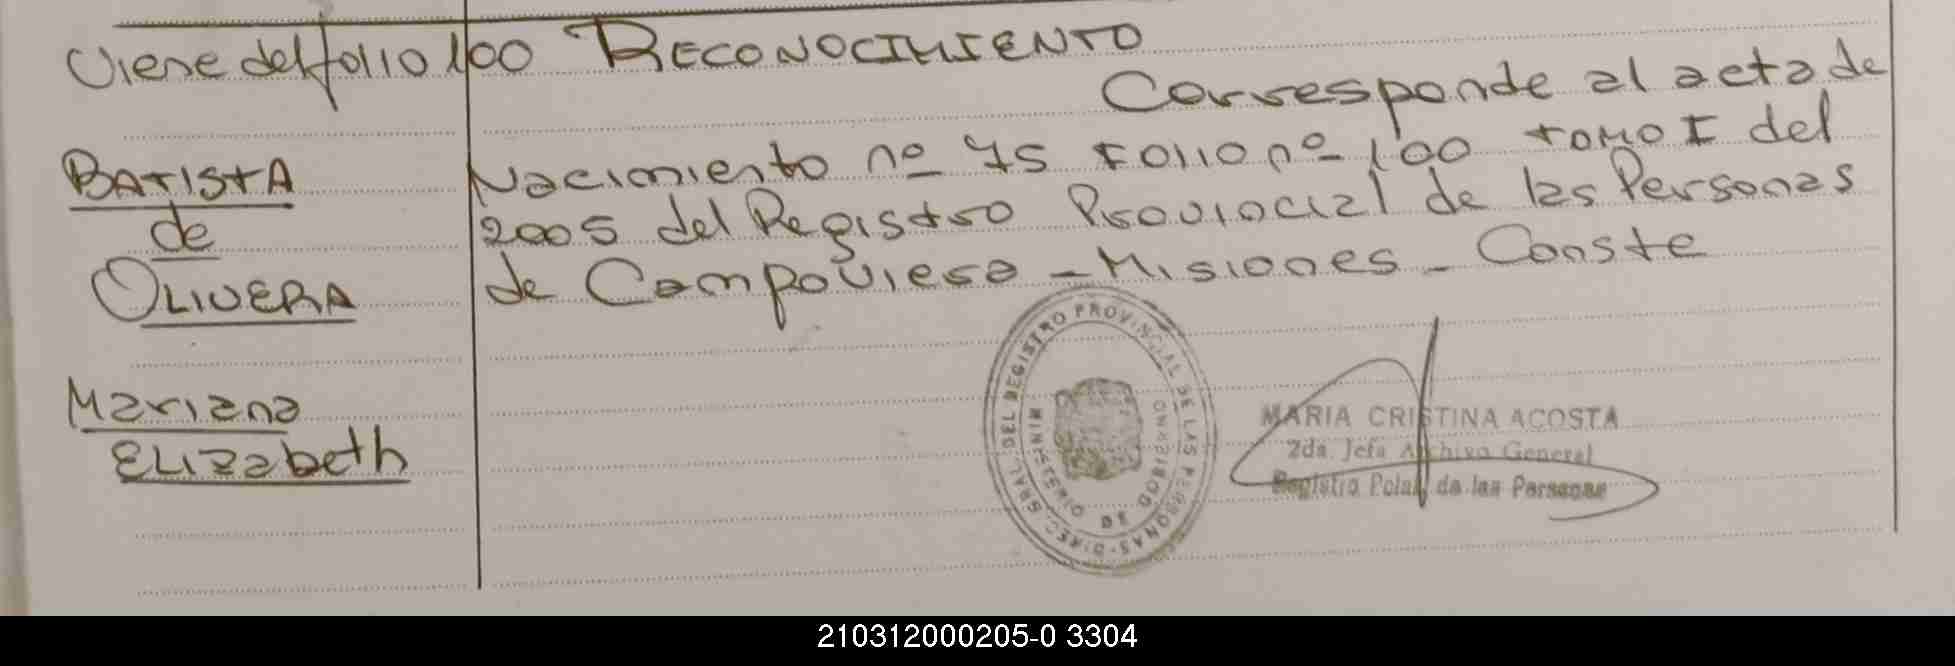 Viene del folio 100 RECONOCIMIENTO
Corresponde al acta de
BATISTA
de
OLIVERA
Mariana
ELIZabeth
Nacimiento nº 75 FOLIO nº 100 TOMO I del
2005 del Registro Provincial de las Personas
de Campo Viera - Misiones - Conste
DIREC. GRAL. DEL REGISTRO PROVINCIAL DE LAS PERSONAS
MINISTERIO DE GOBIERNO
MARIA CRISTINA ACOSTA
2da. Jefa Archivo General
Registro Pcial. de las Personas
210312000205-0 3304